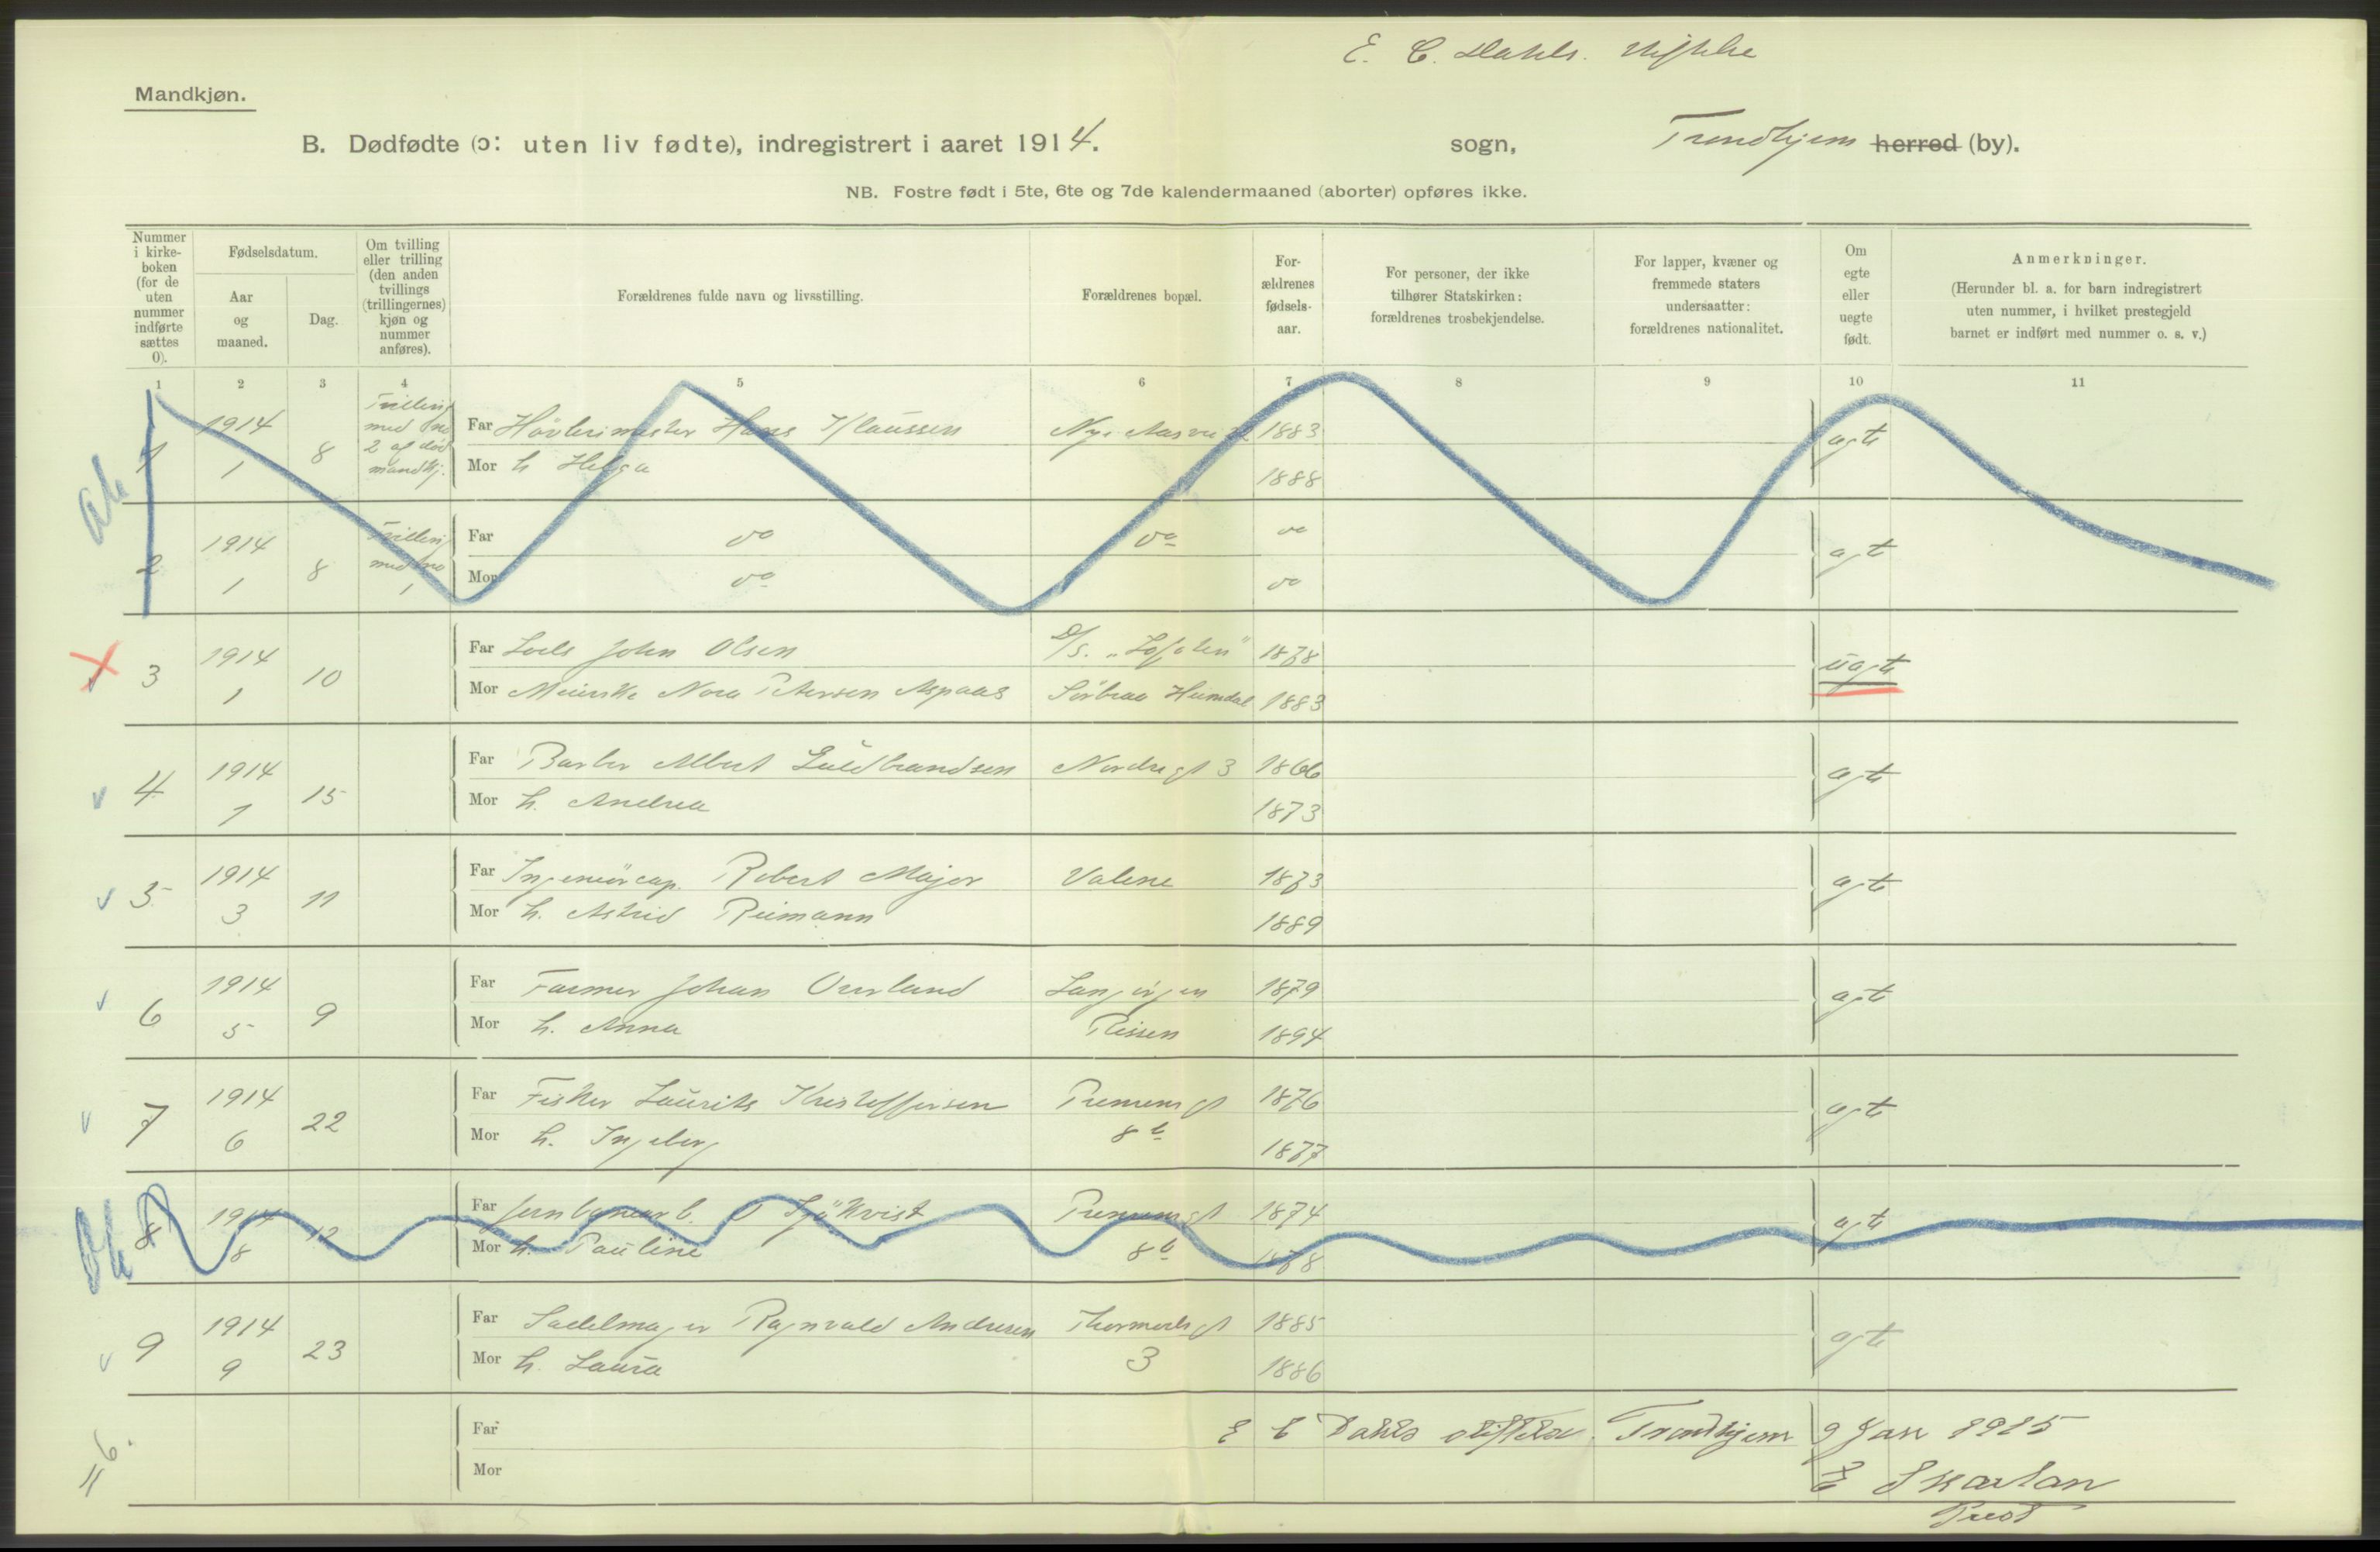 E. C. Dahls. stiftelse
Mandkjøn.
B. Dødfødte (ɔ: uten liv fødte), indregistrert i aaret 1914. sogn, Trondhjem herred (by).
NB. Fostre født i 5te, 6te og 7de kalendermaaned (aborter) opføres ikke.
Nummer i kirke- boken (for de uten nummer indførte sættes 0).
Fødselsdatum.
Aar og maaned.
Dag.
Om tvilling eller trilling (den anden tvillings (trillingernes) kjøn og nummer anføres).
Forældrenes fulde navn og livsstilling.
Forældrenes bopæl.
For- ældrenes fødsels- aar.
For personer, der ikke tilhører Statskirken: forældrenes trosbekjendelse.
For lapper, kvæner og fremmede staters undersaatter: forældrenes nationalitet.
Om egte eller uegte født.
Anmerkninger.
(Herunder bl. a. for barn indregistrert uten nummer, i hvilket prestegjeld barnet er indført med nummer o. s. v.)
1 2 3 4 5 6 7 8 9 10 11
1 1914 1 8 Tvilling med no 2 af død mandkj.
Far Høvlerimester Hans Klaussen 1883 ægte
Mor h. Helga 1888
2 1914 1 8 Tvilling med no 1
Far do do do ægte
Mor do do
3 1914 1 10
Far Lods John Olsen D/S. "Lofoten" 1878 uægte
Mor Meierske Nora Petersen Aspaas Sørbraa Heimdal 1883
4 1914 1 15
Far Barber Albert Guldbrandsen Nordregt 3 1866 ægte
Mor h. Andrea 1873
5 1914 3 11
Far Ingeniørcap. Robert Major Valene 1873 ægte
Mor h. Astrid Reimann 1889
6 1914 5 9
Far Farmer Johan Overland 1879 ægte
Mor h. Anna Rissen 1894
7 1914 6 22
Far Fisker Laurits Kristoffersen 1876 ægte
Mor h. Ingeborg 8 b 1877
8 1914 8 12
Far Jernbanearb. O Sjökvist 1874 ægte
Mor h. Pauline 8 b 1878
9 1914 9 23
Far Sadelmager Ragnvald Andresen 1885 ægte
Mor h. Laura 3 1886
Far E C Dahls stiftelse. Trondhjem 9 Jan 1915
Mor Skarlan
Prest
= 6.